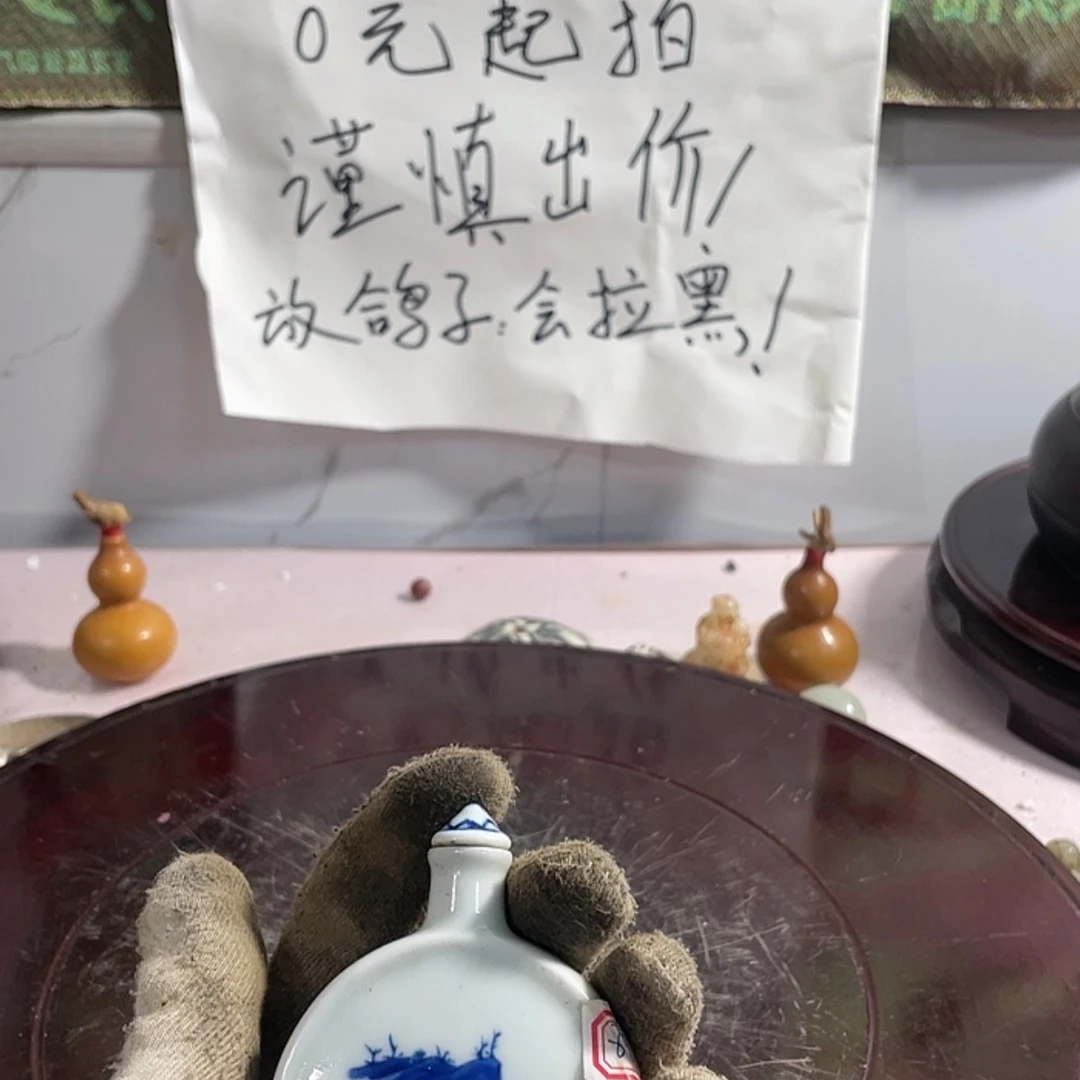 0元起拍
谨慎出价!
放鸽子:会拉黑,!